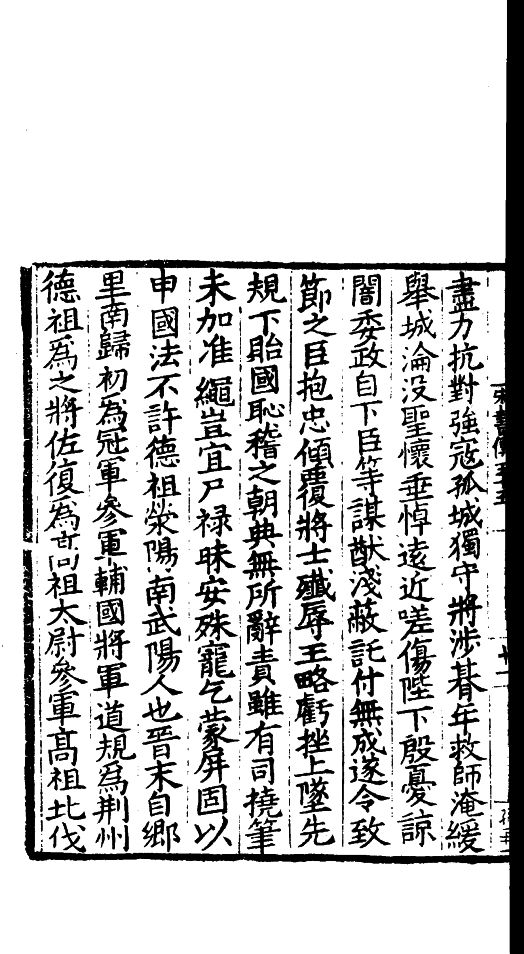 盡力抗對強寇孤城獨守將涉朞年救師淹緩
舉城淪没聖懷垂悼遠近嗟傷陛下殷憂諒
闇委政自下臣等謀猷淺蔽託付無成遂令致
節之臣抱忠傾覆將士殱辱王略虧挫上墜先
規下貽國恥稽之朝典無所辭責雖有司撓筆
未加准繩豈宜尸禄昧安殊寵乞蒙屏固以
申國法不許德祖滎陽南武陽人也晉末自鄉
里南歸初為冠軍參軍輔國將軍道規為荆州
德祖為之將佐復為高祖太尉參軍高祖北伐